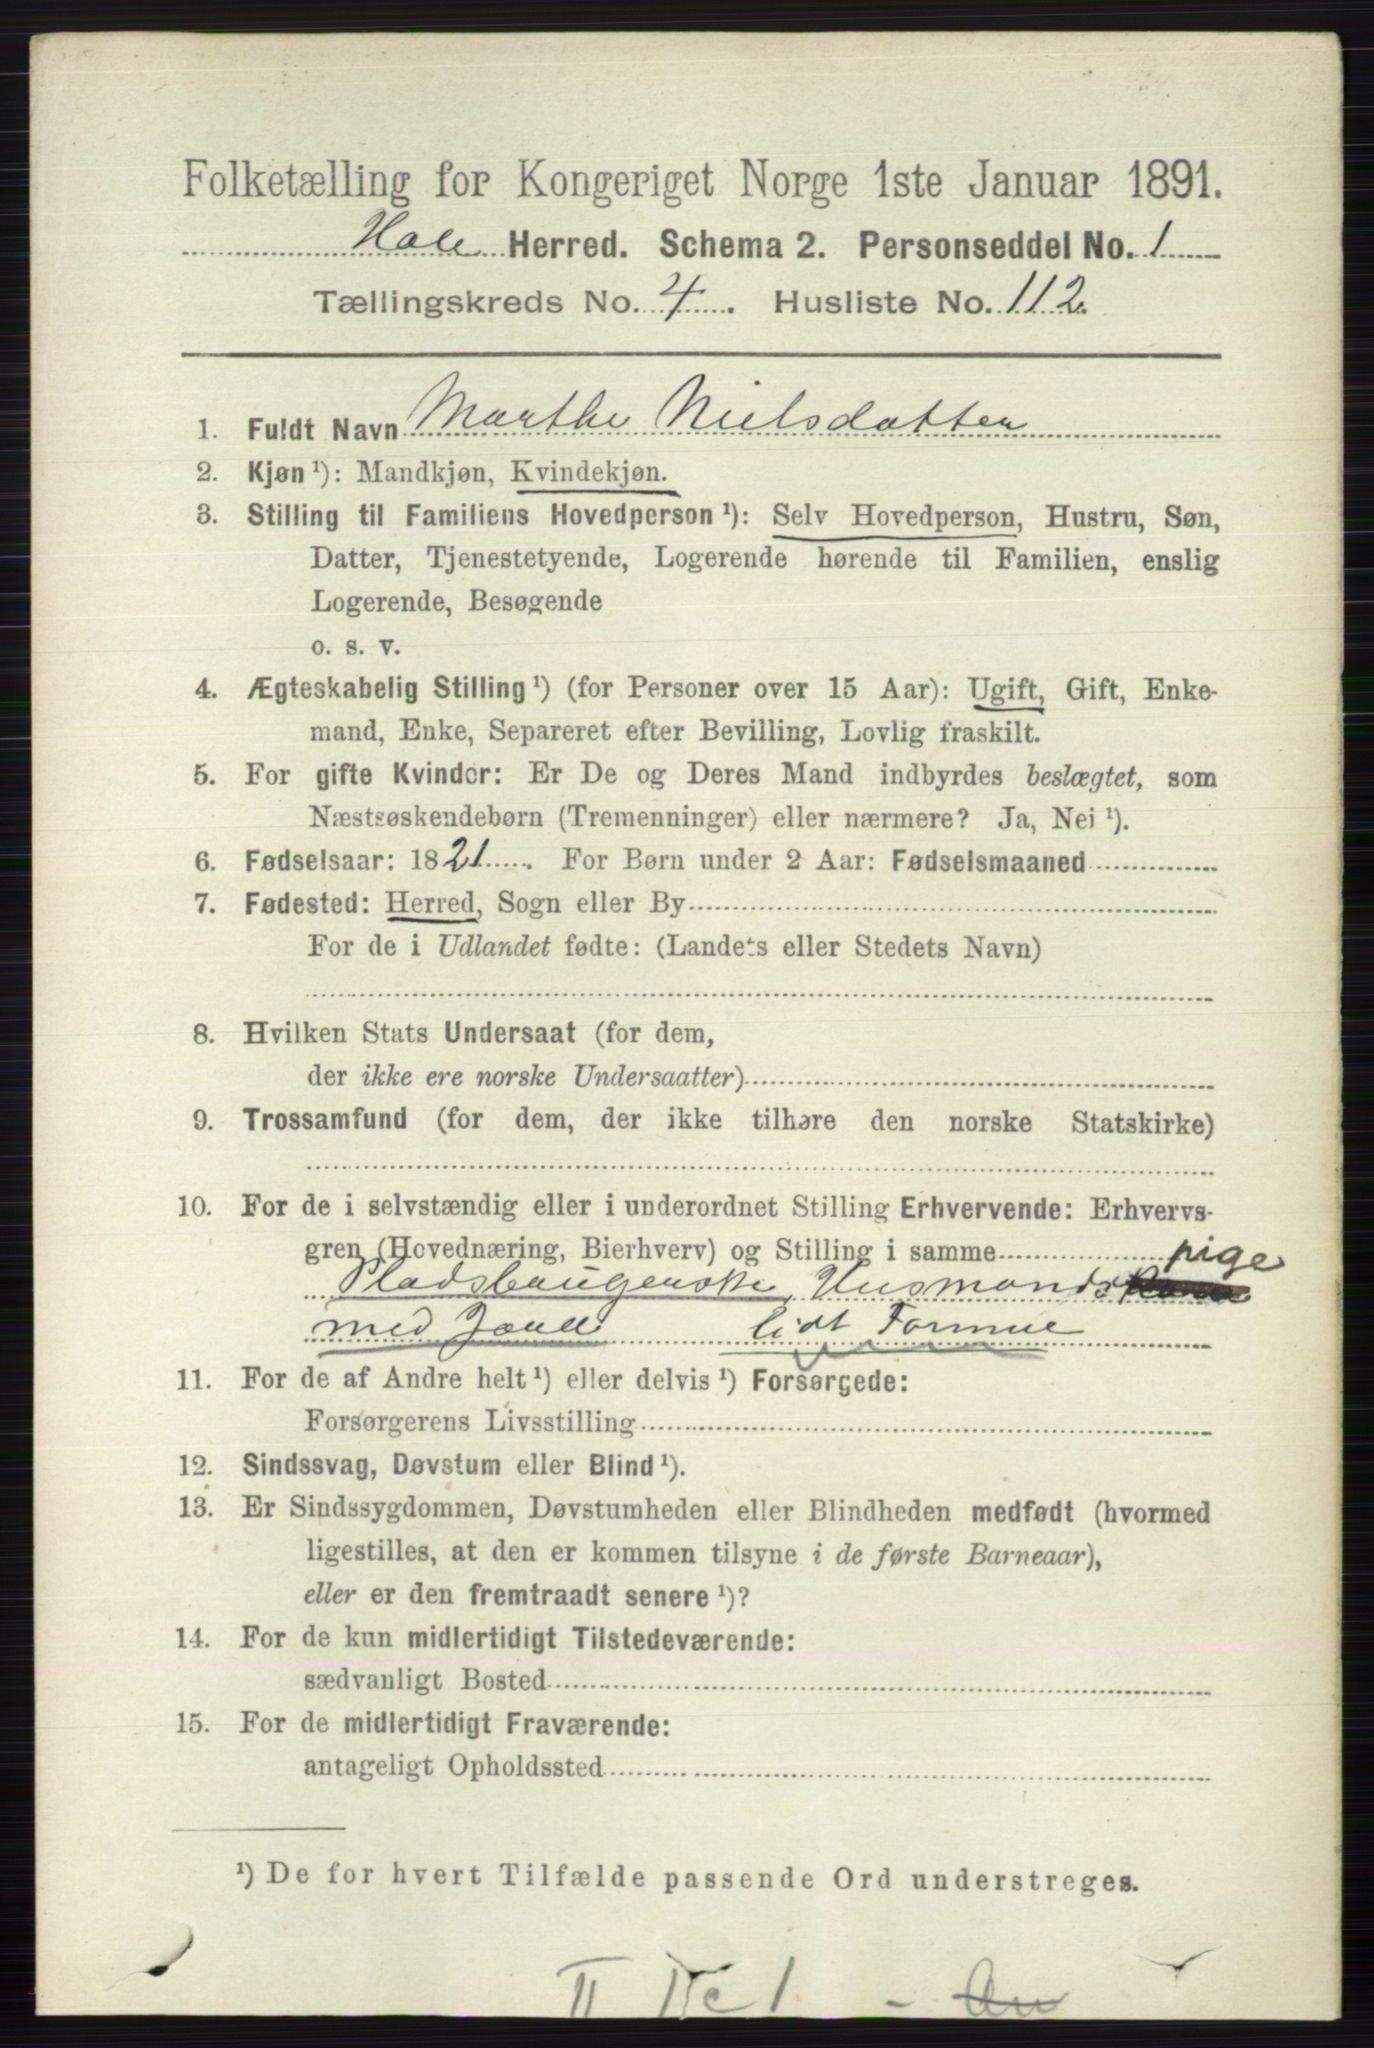 Folketælling for Kongeriget Norge 1ste Januar 1891.
Hole Herred. Schema 2. Personseddel No. 1
Tællingskreds No. 4. Husliste No. 112.
1. Fuldt Navn Marthe Nielsdatter
2. Kjøn ¹): Mandkjøn, Kvindekjøn.
3. Stilling til Familiens Hovedperson ¹): Selv Hovedperson, Hustru, Søn,
Datter, Tjenestetyende, Logerende hørende til Familien, enslig
Logerende, Besøgende
o. s. v.
4. Ægteskabelig Stilling ¹) (for Personer over 15 Aar): Ugift, Gift, Enke-
mand, Enke, Separeret efter Bevilling, Lovlig fraskilt.
5. For gifte Kvinder: Er De og Deres Mand indbyrdes beslægtet, som
Næstsøskendebørn (Tremenninger) eller nærmere? Ja, Nei ¹).
6. Fødselsaar: 1821. For Børn under 2 Aar: Fødselsmaaned
7. Fødested: Herred, Sogn eller By
For de i Udlandet fødte: (Landets eller Stedets Navn)
8. Hvilken Stats Undersaat (for dem,
der ikke ere norske Undersaatter)
9. Trossamfund (for dem, der ikke tilhøre den norske Statskirke)
10. For de i selvstændig eller i underordnet Stilling Erhvervende: Erhvervs-
gren (Hovednæring, Bierhverv) og Stilling i samme pige
Pladsbrugerske, Husmands
med Jord lidt Formue
11. For de af Andre helt ¹) eller delvis ¹) Forsørgede:
Forsørgerens Livsstilling
12. Sindssvag, Døvstum eller Blind ¹).
13. Er Sindssygdommen, Døvstumheden eller Blindheden medfødt (hvormed
ligestilles, at den er kommen tilsyne i de første Barneaar),
eller er den fremtraadt senere ¹)?
14. For de kun midlertidigt Tilstedeværende:
sædvanligt Bosted
15. For de midlertidigt Fraværende:
antageligt Opholdssted
¹) De for hvert Tilfælde passende Ord understreges.
II